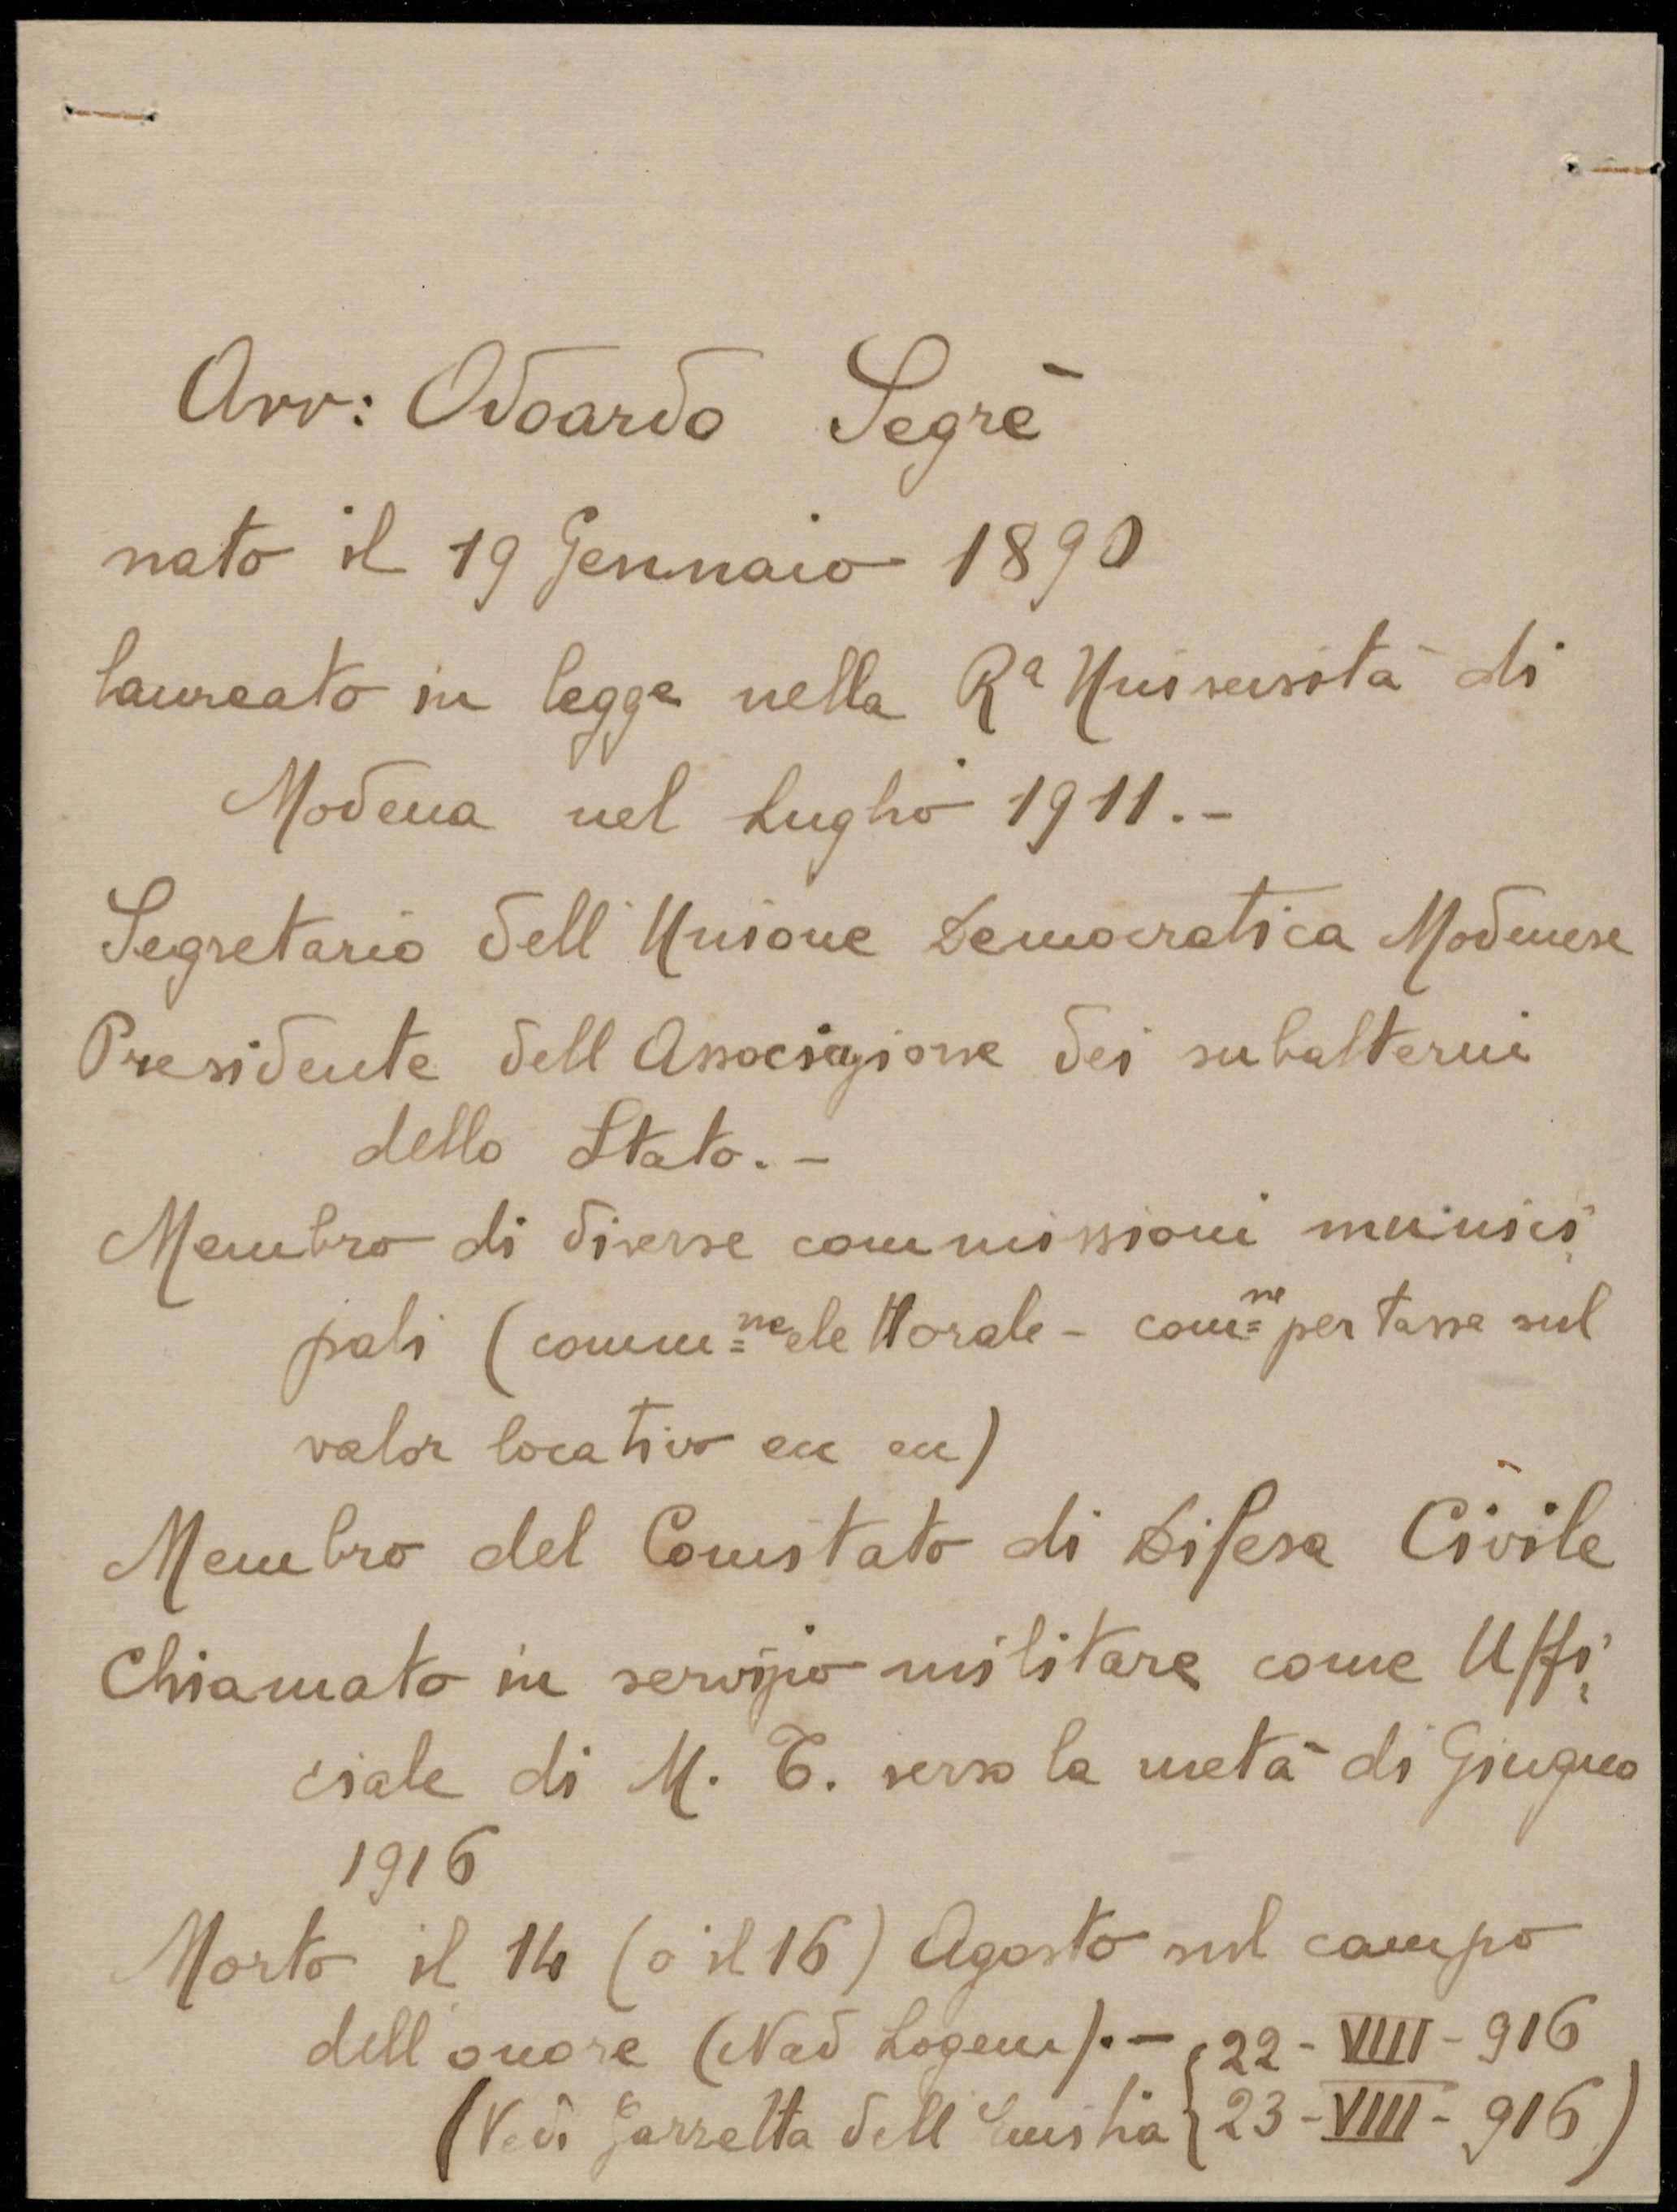 Avv: Odoardo Segrè
nato il 19 Gennaio 1890
laureato in legge nella Rª Università di
Modena nel Luglio 1911.-
Segretario dell'Unione Democratica Modenese
Presidente dell Associazione dei subalterni
dello Stato.-
Membro di diverse commissioni munici
pali (comm=ne elettorale - com=ne per tassa sul
valor locativo ecc ecc)
Membro del Comitato di Difesa Civile
Chiamato in servizio militare come Uffi
ciale di M. T. verso la metà di Giugno
1916
Morto il 14 (o il 16) Agosto sul campo
dell'onore (Nad Logem).- { 22 - VIII - 916
(Vedi Gazzetta dell'Emilia { 23 - VIII - 916)